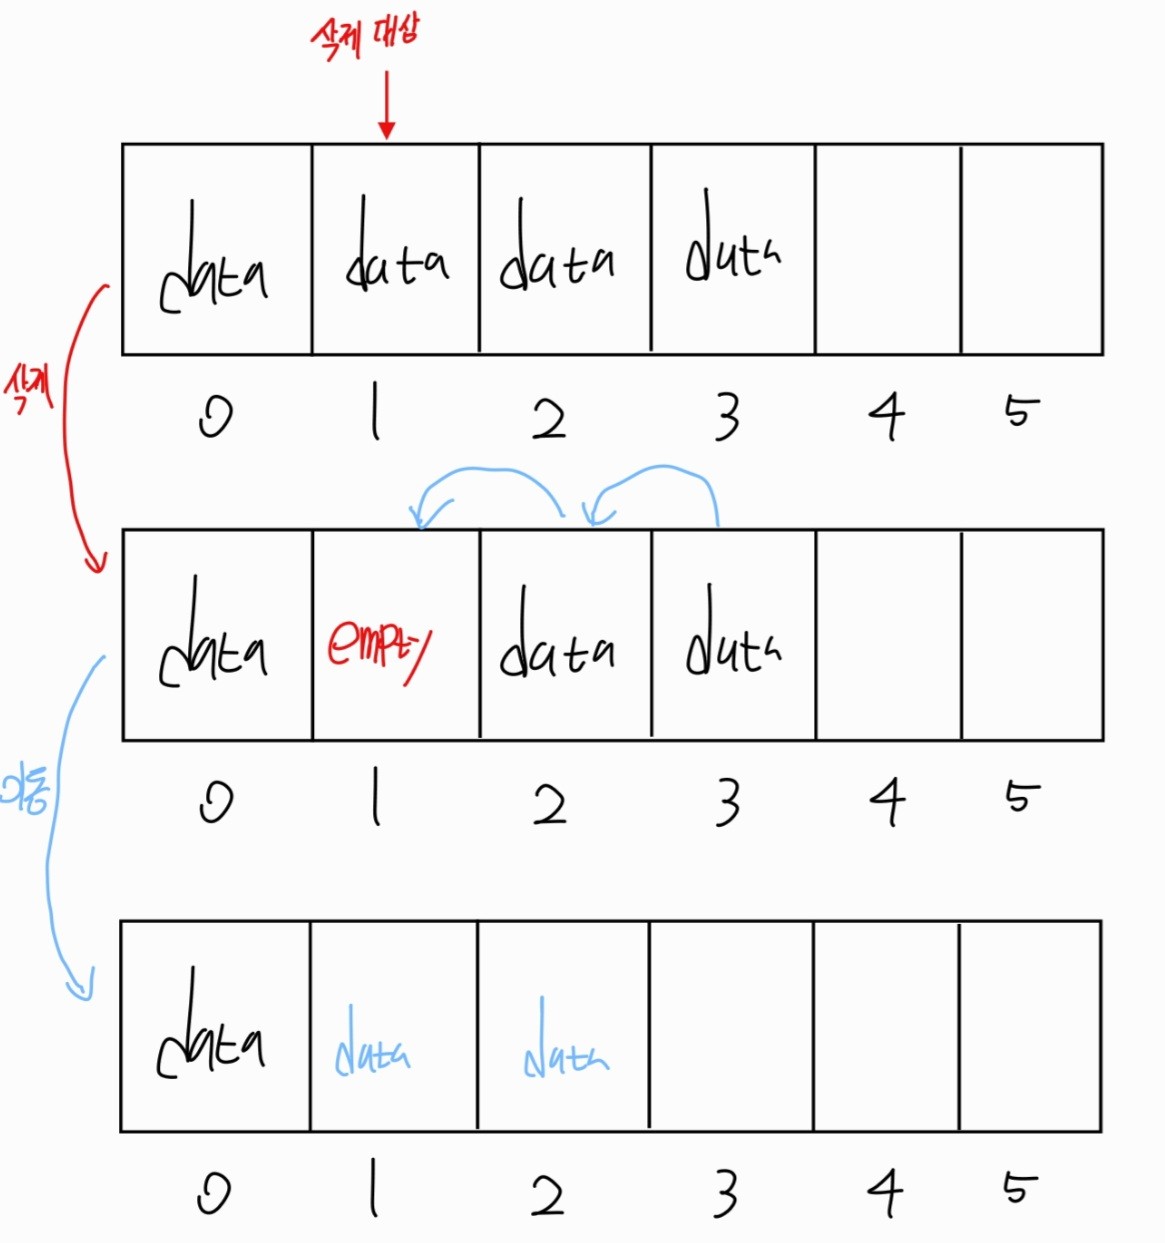 삭제 대상
data data data data
삭제
0 1 2 3 4 5
data empty data data
이동
0 1 2 3 4 5
data data data
0 1 2 3 4 5